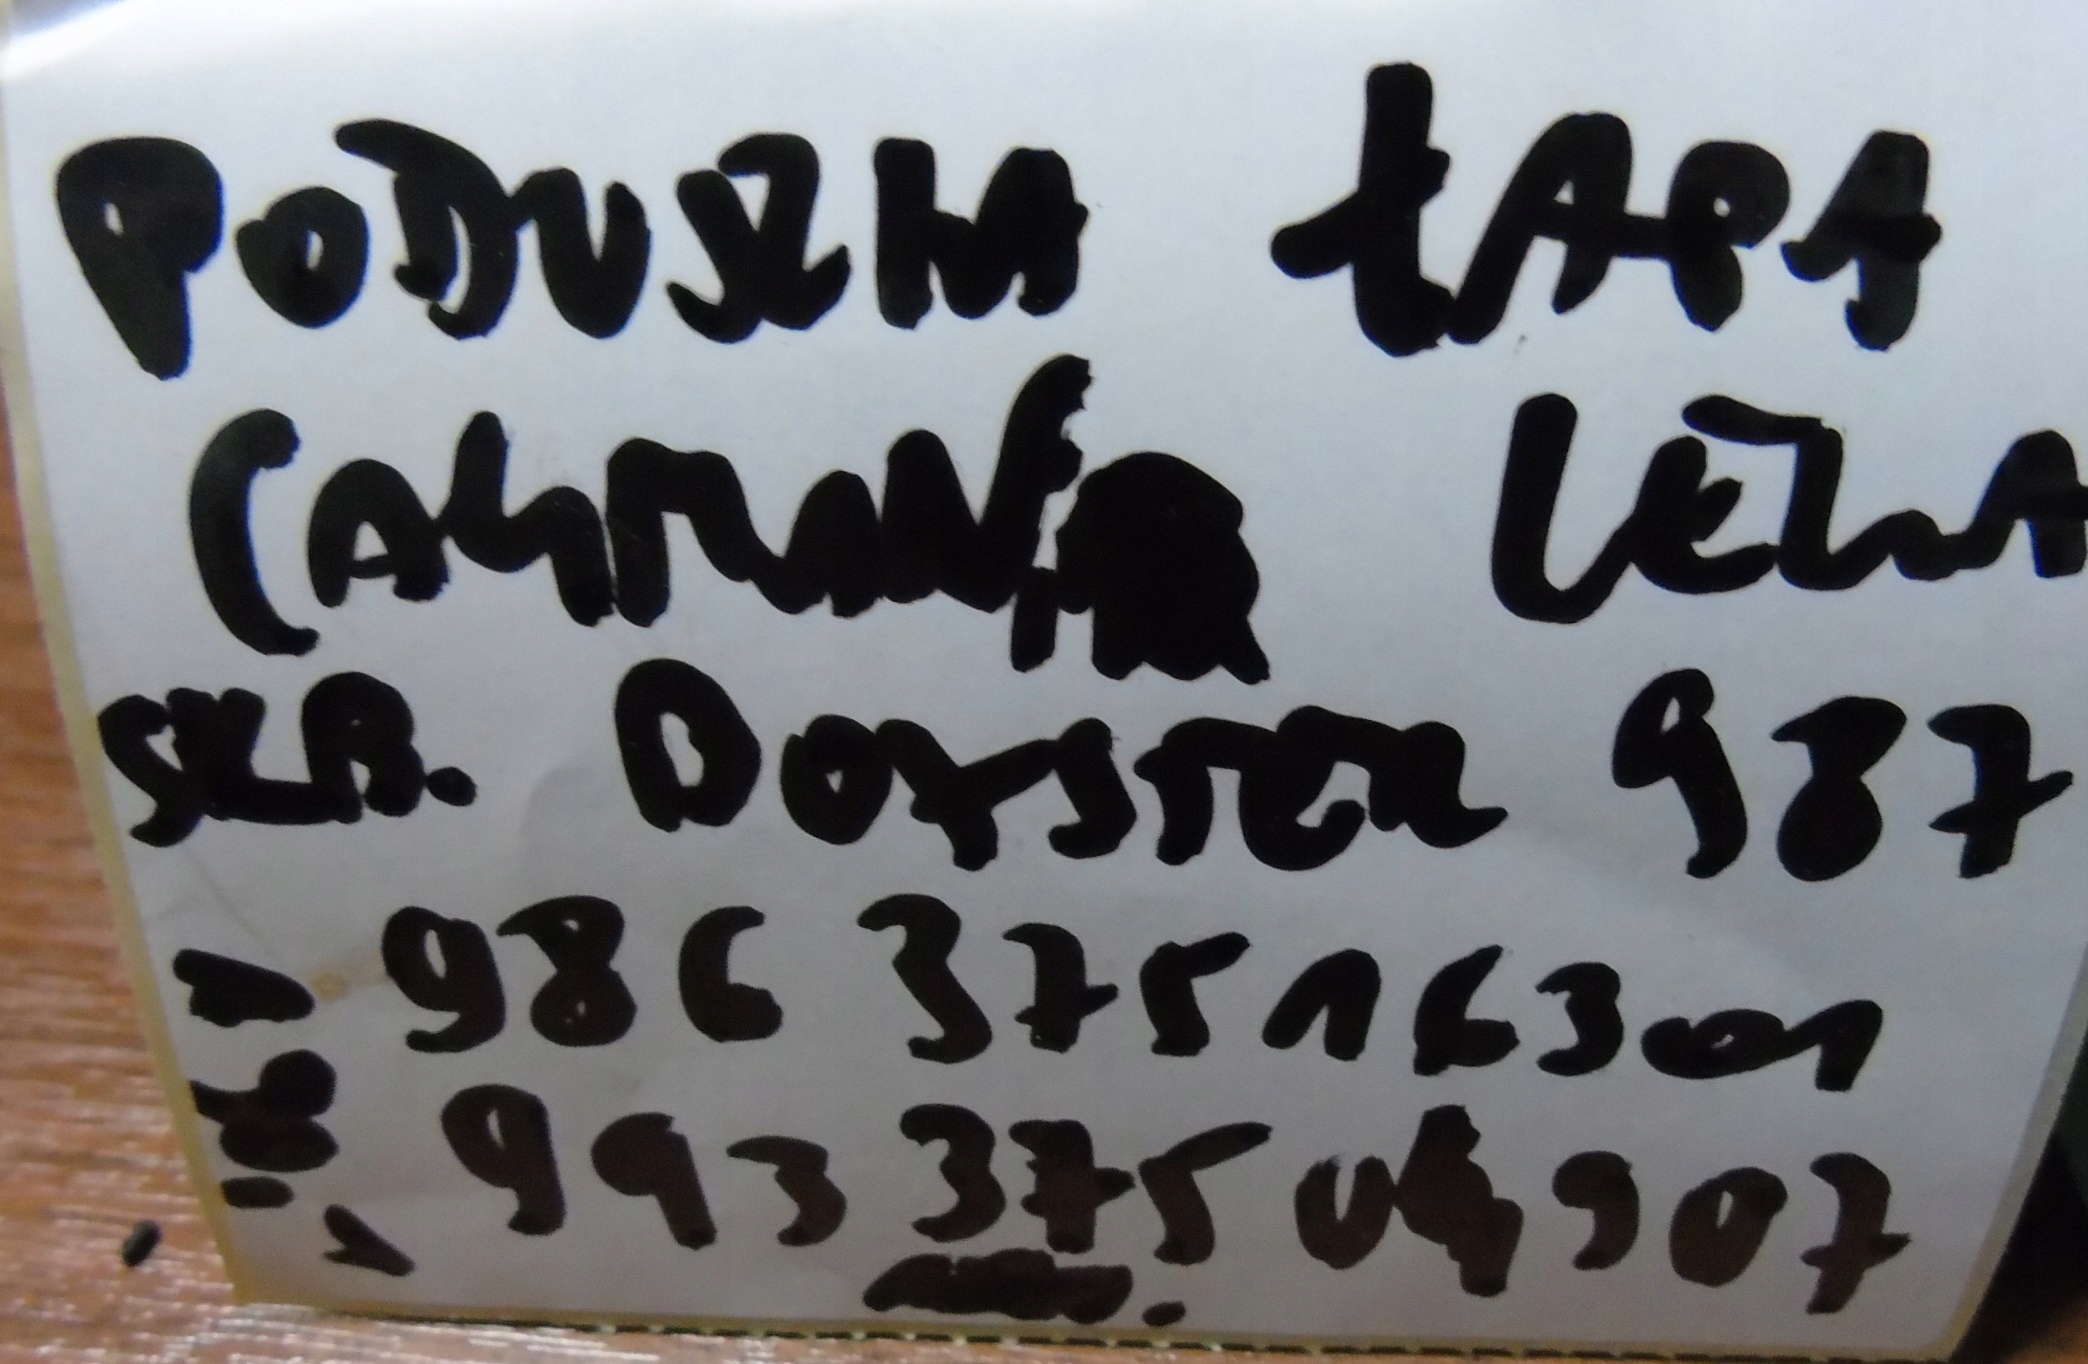 PODUSZKA ŁAPA
CAYMAN LEWA
SKR. BOXSTER 987
986 375 163 01
993 375 04907